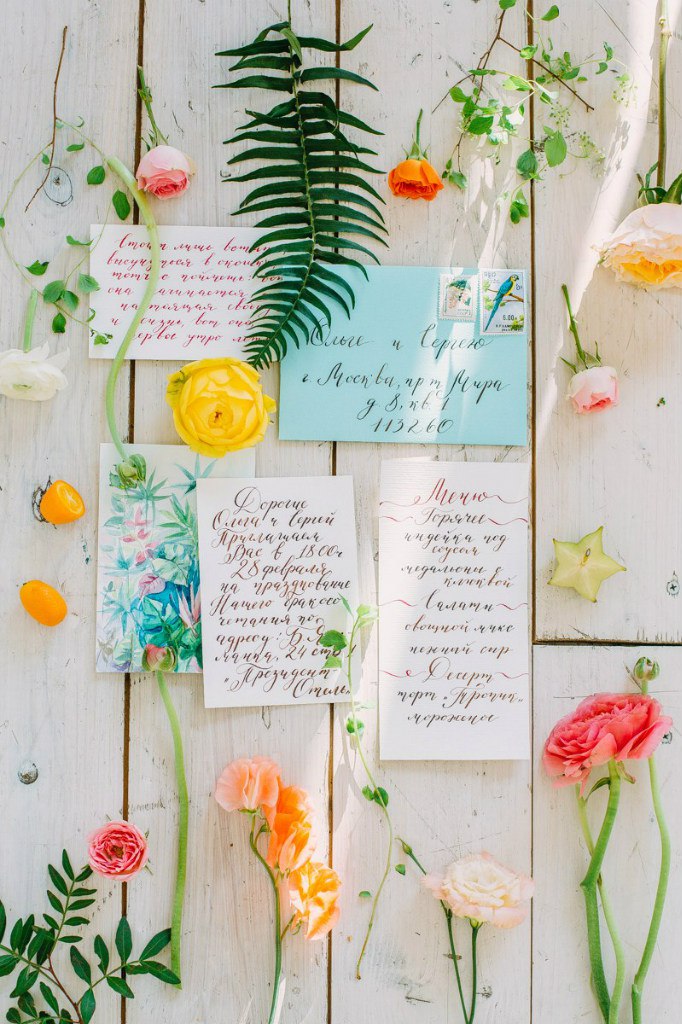 Стоит лишь
высунуться в окошко
тотчас поймёшь: вот
она начинается
настоящая
и жизнь, вот оно
первое утро
Ольге и Сергею
г. Москва, пр-т Мира
д. 8, кв. 1
113260
Дорогие
Ольга и Сергей
Приглашаем
Вас в 18:00ч
28 февраля
на празднование
Нашего бракосо-
четания по
адресу: Б. Я
манка, 24 стр 1
"Президент-
Отель"
Меню
Горячее
индейка под
соусом
медальоны с
клюквой
Салаты
овощной микс
нежный сыр
Десерт
торт "Тропик"
мороженое